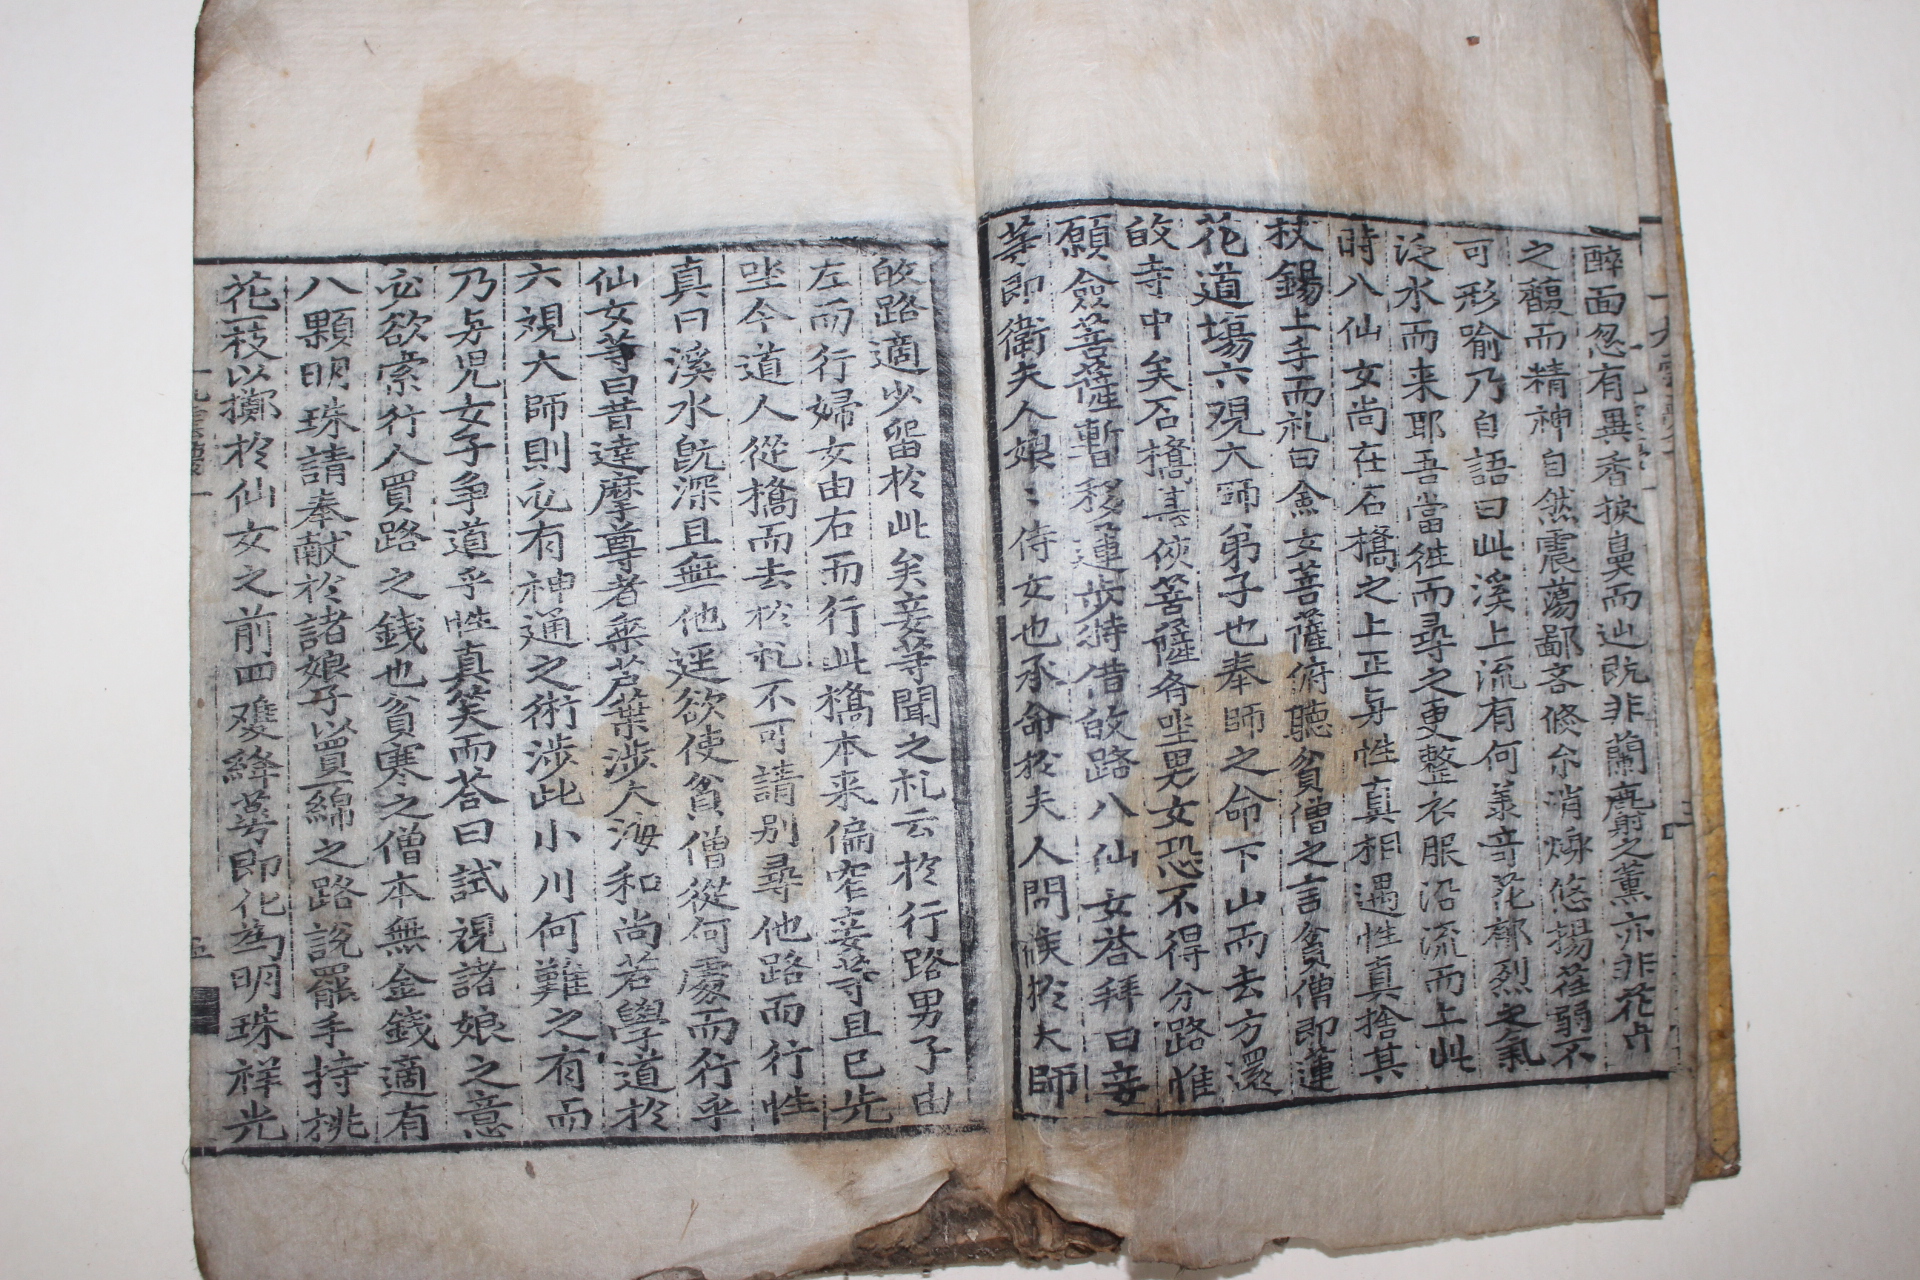 醉面忽有異香挨鼻而过既非蘭麝之薰亦非花卉
之馥而精神自然震蕩鄙吝倏尒消爍悠揚荏弱不
可形喻乃自語曰此溪上流有何㨾奇花郁烈之氣
泛水而来耶吾當徃而尋之更整衣服沿流而上此
時八仙女尚在石橋之上正与性真相遇性真捨其
杖錫上手而礼曰僉女菩薩俯聽貧僧之言貧僧即蓮
花道塲六观大師弟子也奉師之命下山而去方還
故寺中矣石橋甚俠菩薩斉坐男女恐不得分路惟
願僉菩薩暫移蓮步特借故路八仙女荅拜曰妾
等即衛夫人娘〻侍女也承命於夫人問候於大師
故路適少留於此矣妾等聞之礼云於行路男子由
左而行婦女由右而行此橋本来偏窄妾等且已先
坐今道人從橋而去於礼不可請别尋他路而行性
真曰溪水既深且無他逕欲使貧僧從何處而行乎
仙女等曰昔達摩尊者乘芦葉涉大海和尚若學道於
六观大師則必有神通之術涉此小川何難之有而
乃与児女子争道乎性真笑而荅曰試視諸娘之意
必欲索行人買路之錢也貧寒之僧本無金錢適有
八顆明珠請奉献於諸娘子以買一綿之路說罷手持桃
花一枝以擲於仙女之前四雙絳萼即化為明珠祥光